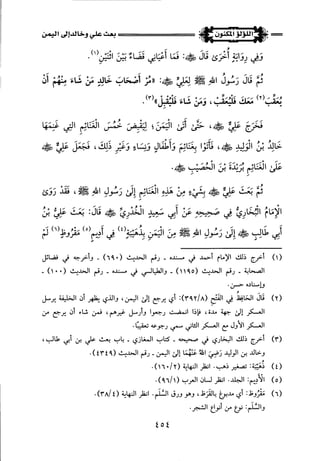 بعث علي وخالد إلى اليمن
اللؤلؤ المكنون
وفي رواية أخرى قال ﷺ: فما أعياني قضاء بين اثنين(١).
ثم قال رسول الله ﷺ لعلي ﷺ: «مر أصحاب خالد من شاء منهم أن
يعقب(٢) معك فليعقب، ومن شاء فليقبل»(٣).
فخرج علي ﷺ، حتى أتى اليمن؛ ليقبض خمس الغنائم التي غنمها
خالد بن الوليد ﷺ، فأتوا بغنائم وأطفال ونساء وغير ذلك، فجعل علي ﷺ
على الغنائم بريدة بن الحصيب ﷺ.
ثم بعث علي ﷺ بشيء من هذه الغنائم إلى رسول الله ﷺ، فقد روى
الإمام البخاري في صحيحه عن أبي سعيد الخدري ﷺ قال: بعث علي بن
أبي طالب ﷺ إلى رسول الله ﷺ من اليمن بذهيبة(٤) في أديم(٥) مقروظ(٦) لم
(١) أخرج ذلك الإمام أحمد في مسنده - رقم الحديث (٦٩٠) - وأخرجه في فضائل
الصحابة - رقم الحديث (١١٩٥) - والطيالسي في مسنده - رقم الحديث (١٠٠) -
وإسناده حسن.
(٢) قال الحافظ في الفتح (٣٩٢/٨): أي يرجع إلى اليمن، والتعقيب أن يعود بعض
العسكر إلى الغزو بعد مدة، فإذا انقضت رجعوا وأرسل غيرهم، فمن شاء أن يرجع من
العسكر الأول مع العسكر الثاني سمي رجوعه تعقيبا.
(٣) أخرج ذلك البخاري في صحيحه - كتاب المغازي - باب بعث علي بن أبي طالب،
وخالد بن الوليد رضي الله عنهما إلى اليمن - رقم الحديث (٤٣٤٩).
(٤) ذهيبة: تصغير ذهب. انظر النهاية (١٦٠/٢).
(٥) الأديم: الجلد. انظر لسان العرب (٩٦/١).
(٦) مقروظ: أي مدبوغ بالقرظ، وهو ورق السلم. انظر النهاية (٣٨/٤)
والسلم: نوع من أنواع الشجر.
٤٥٤